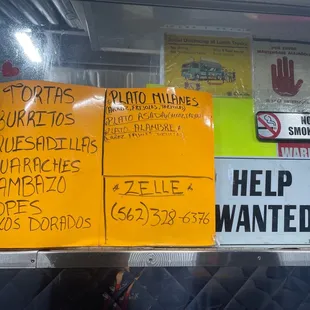 TORTAS
BURRITOS
QUESADILLAS
UARACHES
AMBAZO
OPES
LOS DORADOS
PLATO MILANES
PLATO ASADA
PLATO ALAMBRE
"ZELLE"
(562) 328-6376
NO
SMOK
WAR
HELP
WANTED